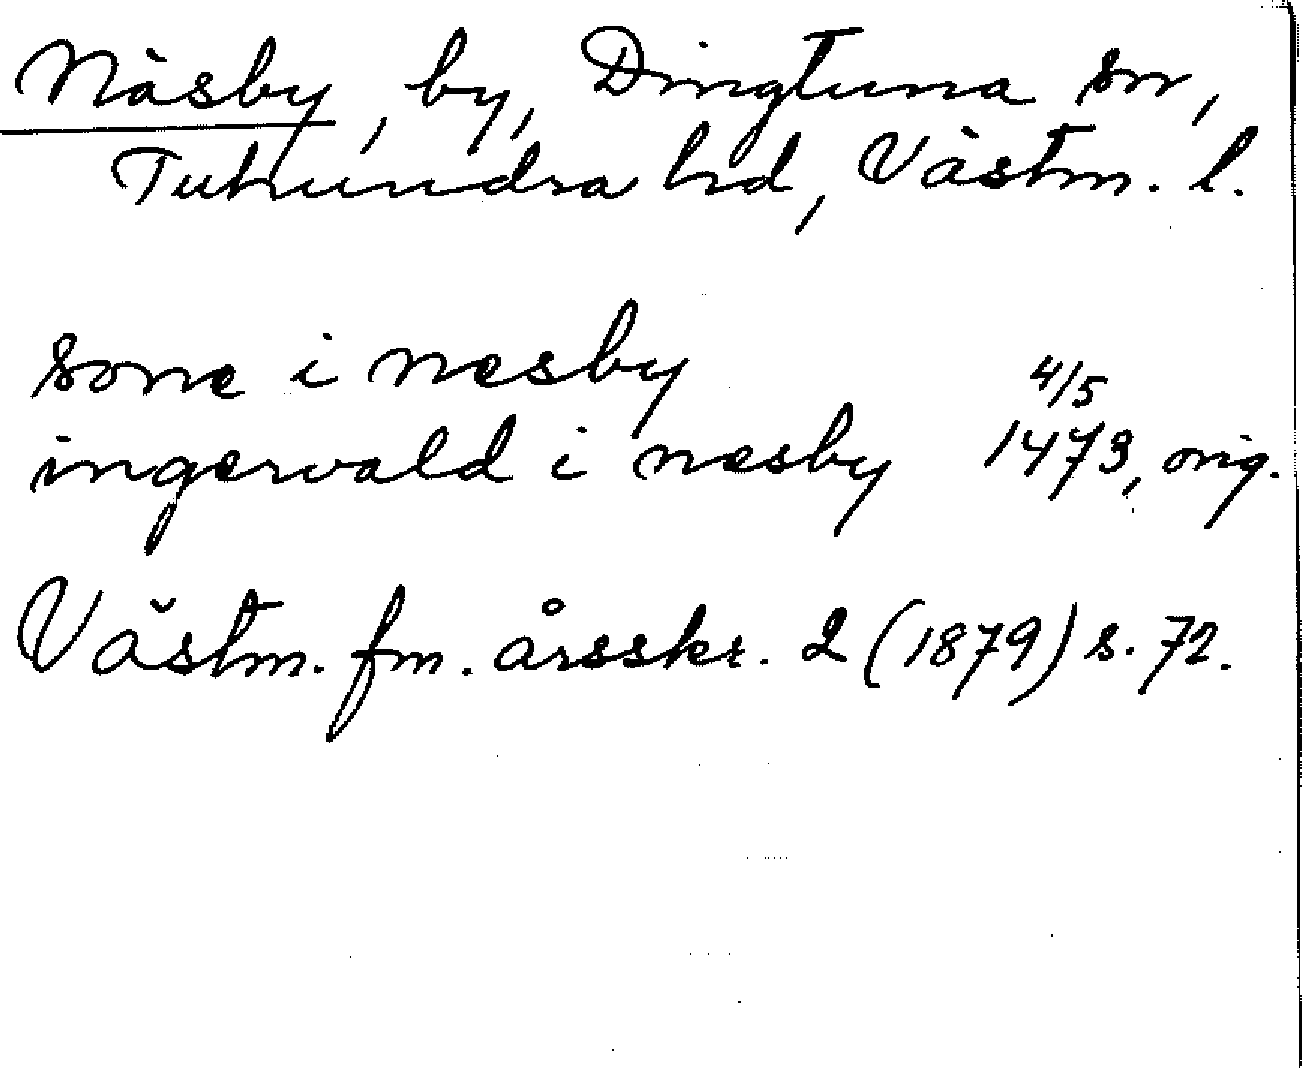 Näsby, by, Dingtuna sn,
Tuhundra hd, Västm. l.
sone i nesby
4/5
ingervald i nesby 1473, orig.
Västm. fm. årsskr. 2 (1879) s. 72.